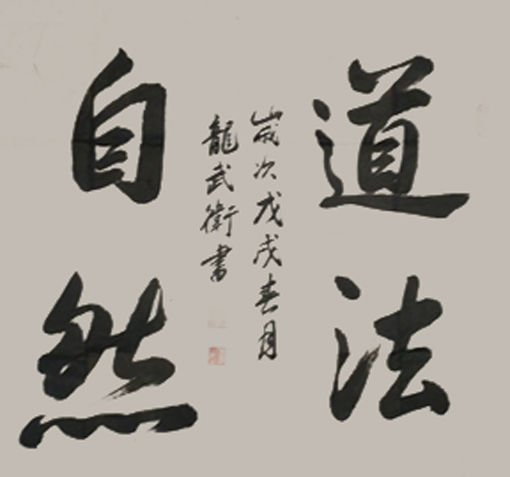 道法
自然
歲次戊戌春月
龍武衛書